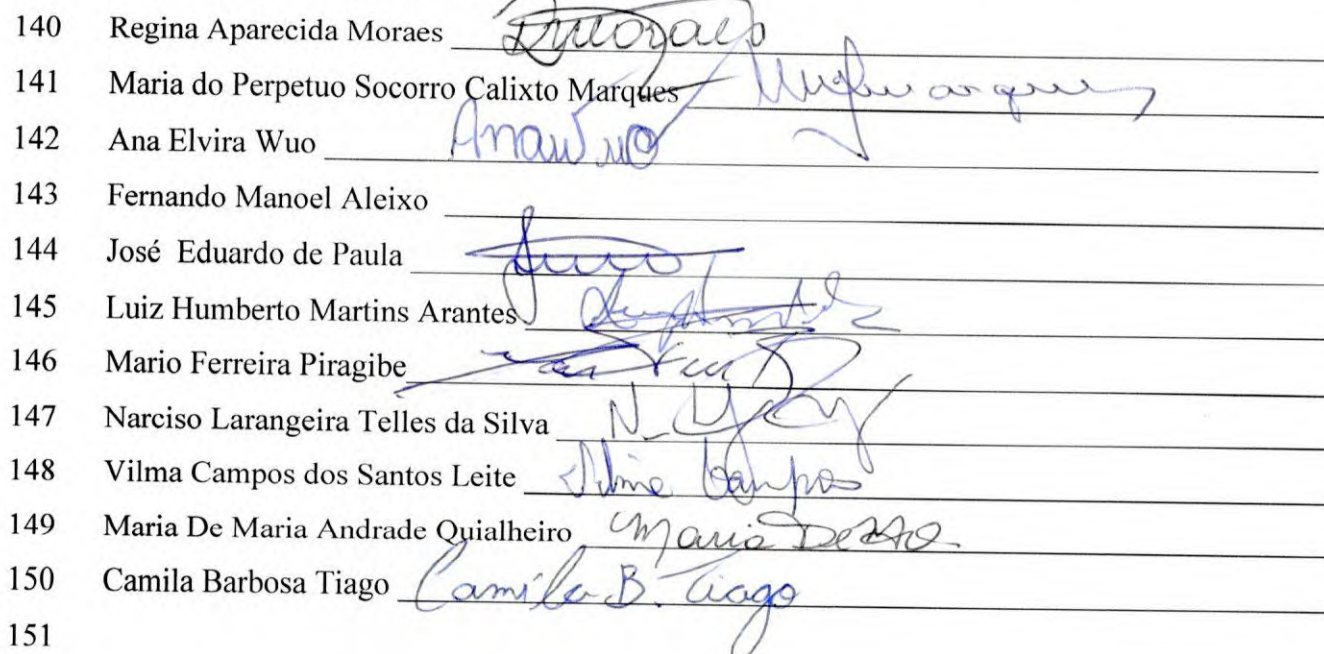 140 Regina Aparecida Moraes
141 Maria do Perpetuo Socorro Calixto Marques
142 Ana Elvira Wuo
143 Fernando Manoel Aleixo
144 José Eduardo de Paula
145 Luiz Humberto Martins Arantes
146 Mario Ferreira Piragibe
147 Narciso Larangeira Telles da Silva
148 Vilma Campos dos Santos Leite Vilma Campos
149 Maria De Maria Andrade Quialheiro Maria De
150 Camila Barbosa Tiago Camila B. Tiago
151